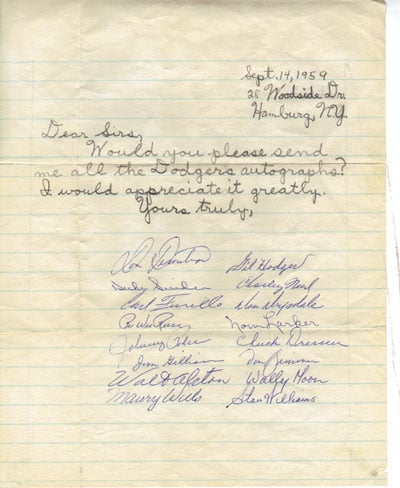 Sept. 14, 1959
28 Woodside Dr.
Hamburg, N.Y.
Dear Sirs,
Would you please send
me all the Dodgers autographs?
I would appreciate it greatly.
Yours truly,
Don Demeter Gil Hodges
Duke Snider Charley Neal
Carl Furillo Don Drysdale
Pee Wee Reese Norm Larker
Johnny Podres Chuck Dressen
Jim Gilliam Don Zimmer
Walt Alston Wally Moon
Maury Wills Stan Williams